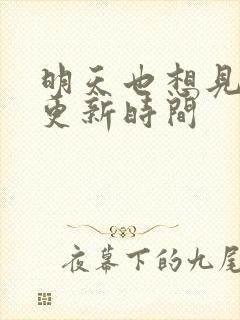 明天也想見
更新時間
夜幕下的九尾